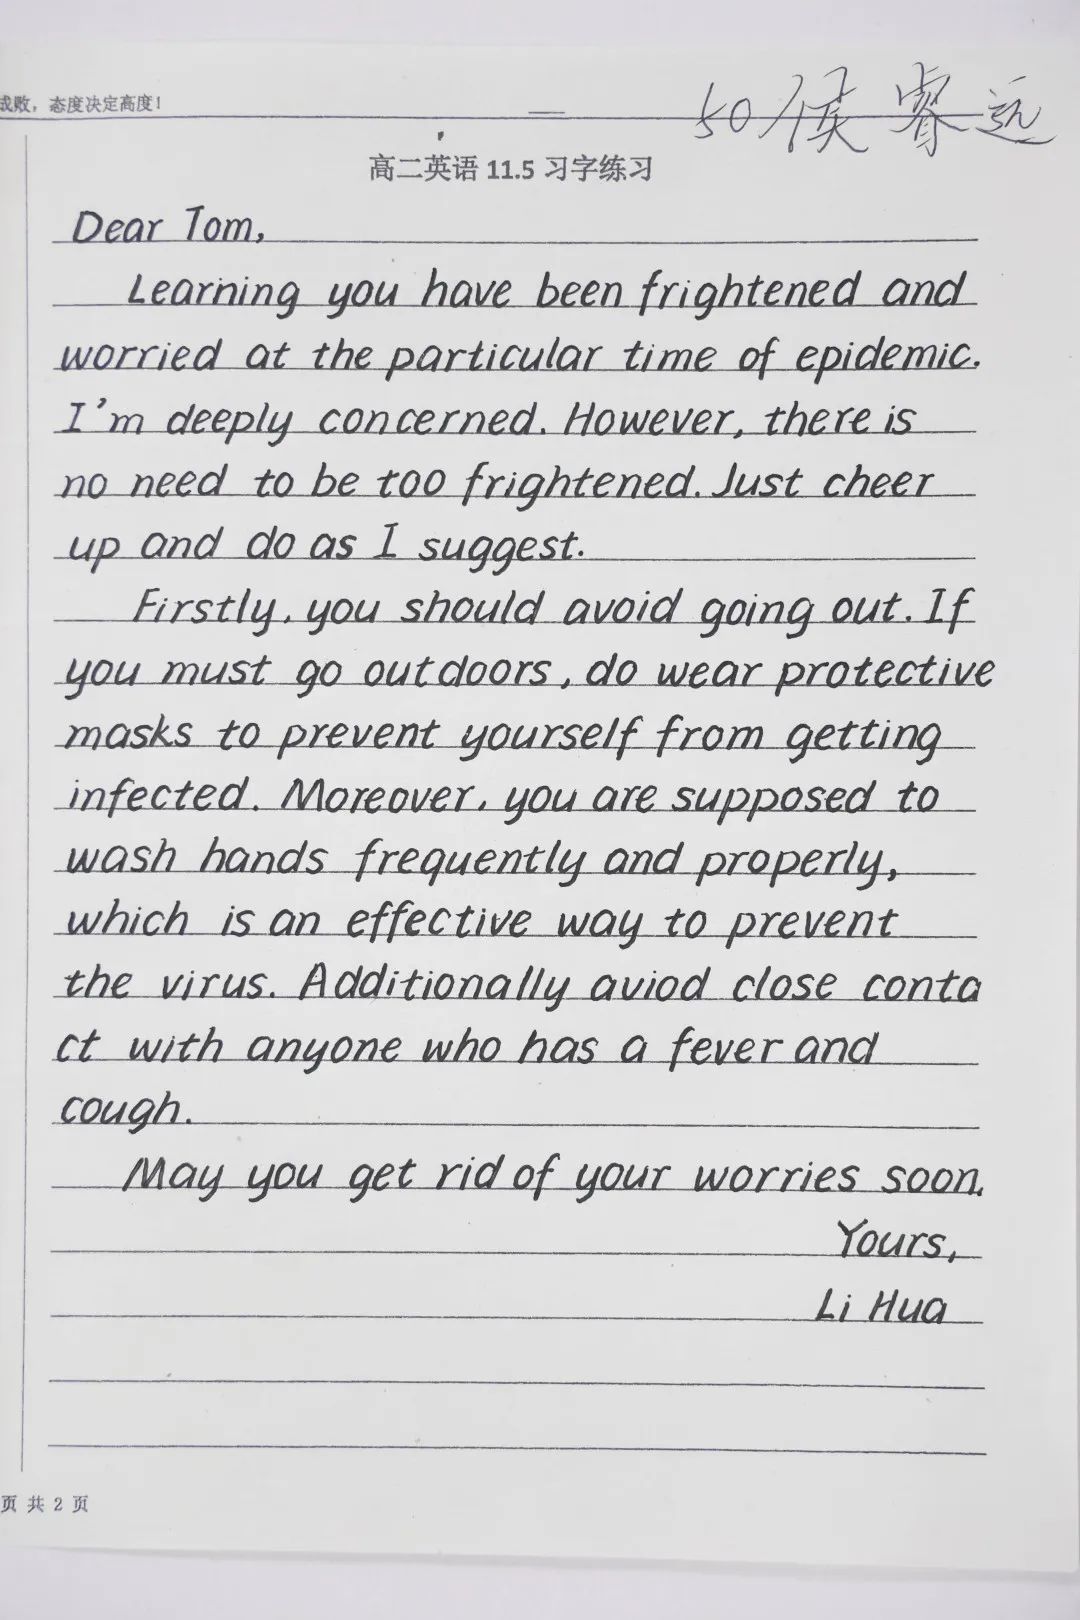 成败，态度决定高度！
50 侯睿远
高二英语 11.5 习字练习
Dear Tom,
Learning you have been frightened and
worried at the particular time of epidemic.
I'm deeply concerned. However, there is
no need to be too frightened. Just cheer
up and do as I suggest.
Firstly, you should avoid going out. If
you must go outdoors, do wear protective
masks to prevent yourself from getting
infected. Moreover, you are supposed to
wash hands frequently and properly,
which is an effective way to prevent
the virus. Additionally aviod close conta
ct with anyone who has a fever and
cough.
May you get rid of your worries soon.
Yours,
Li Hua
页 共 2 页